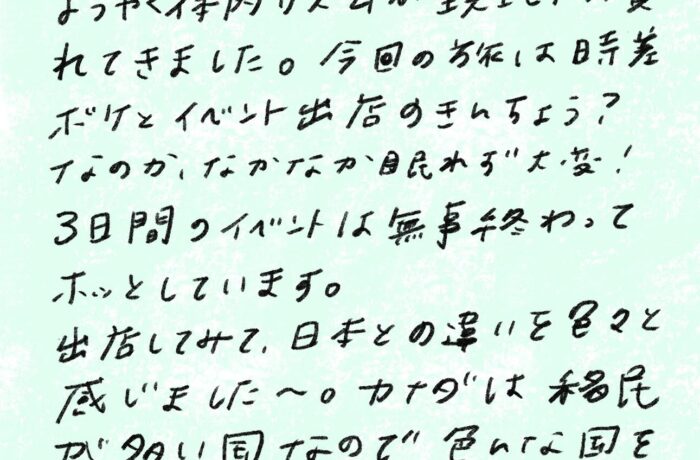 ようやく体内リズムが現地時間に慣
れてきました。今回の旅は時差
ボケとイベント出店のきんちょう?
なのか、なかなか眠れず大変!
3日間のイベントは無事終わって
ホッとしています。
出店してみて、日本との違いを色々と
感じました〜。カナダは移民
が多い国なので色んな国を